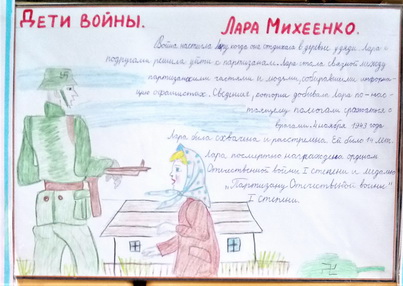 Дети войны. Лара Михеенко.
Война настигла Лару, когда она отдыхала в деревне у дяди. Лара с
подругами решила уйти к партизанам. Лара стала связной между
партизанскими частями и людьми, собиравшими информа-
цию о фашистах. Сведения, которые добывала Лара по-нас-
тоящему помогали сражаться с
врагами. 4 ноября 1943 года
Лара была схвачена и расстреляна. Ей было 14 лет.
Лара посмертно награждена орденом
Отечественной войны I степени и медалью
"Партизану Отечественной войны"
I степени.